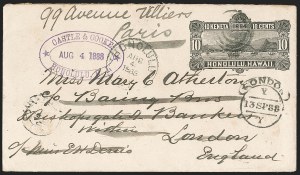 99 Avenue Villiers
Paris
CASTLE & COOKE
AUG 4 1888
HONOLULU
10 KENETA 10 CENTS
10 10
HONOLULU, HAWAII
Miss Mary C Atherton
c/o Baring Bros
Bankers
Bishopsgate St
Within
London
England
c/o Miss E W Lewis
LONDON
Y
13 SP 88